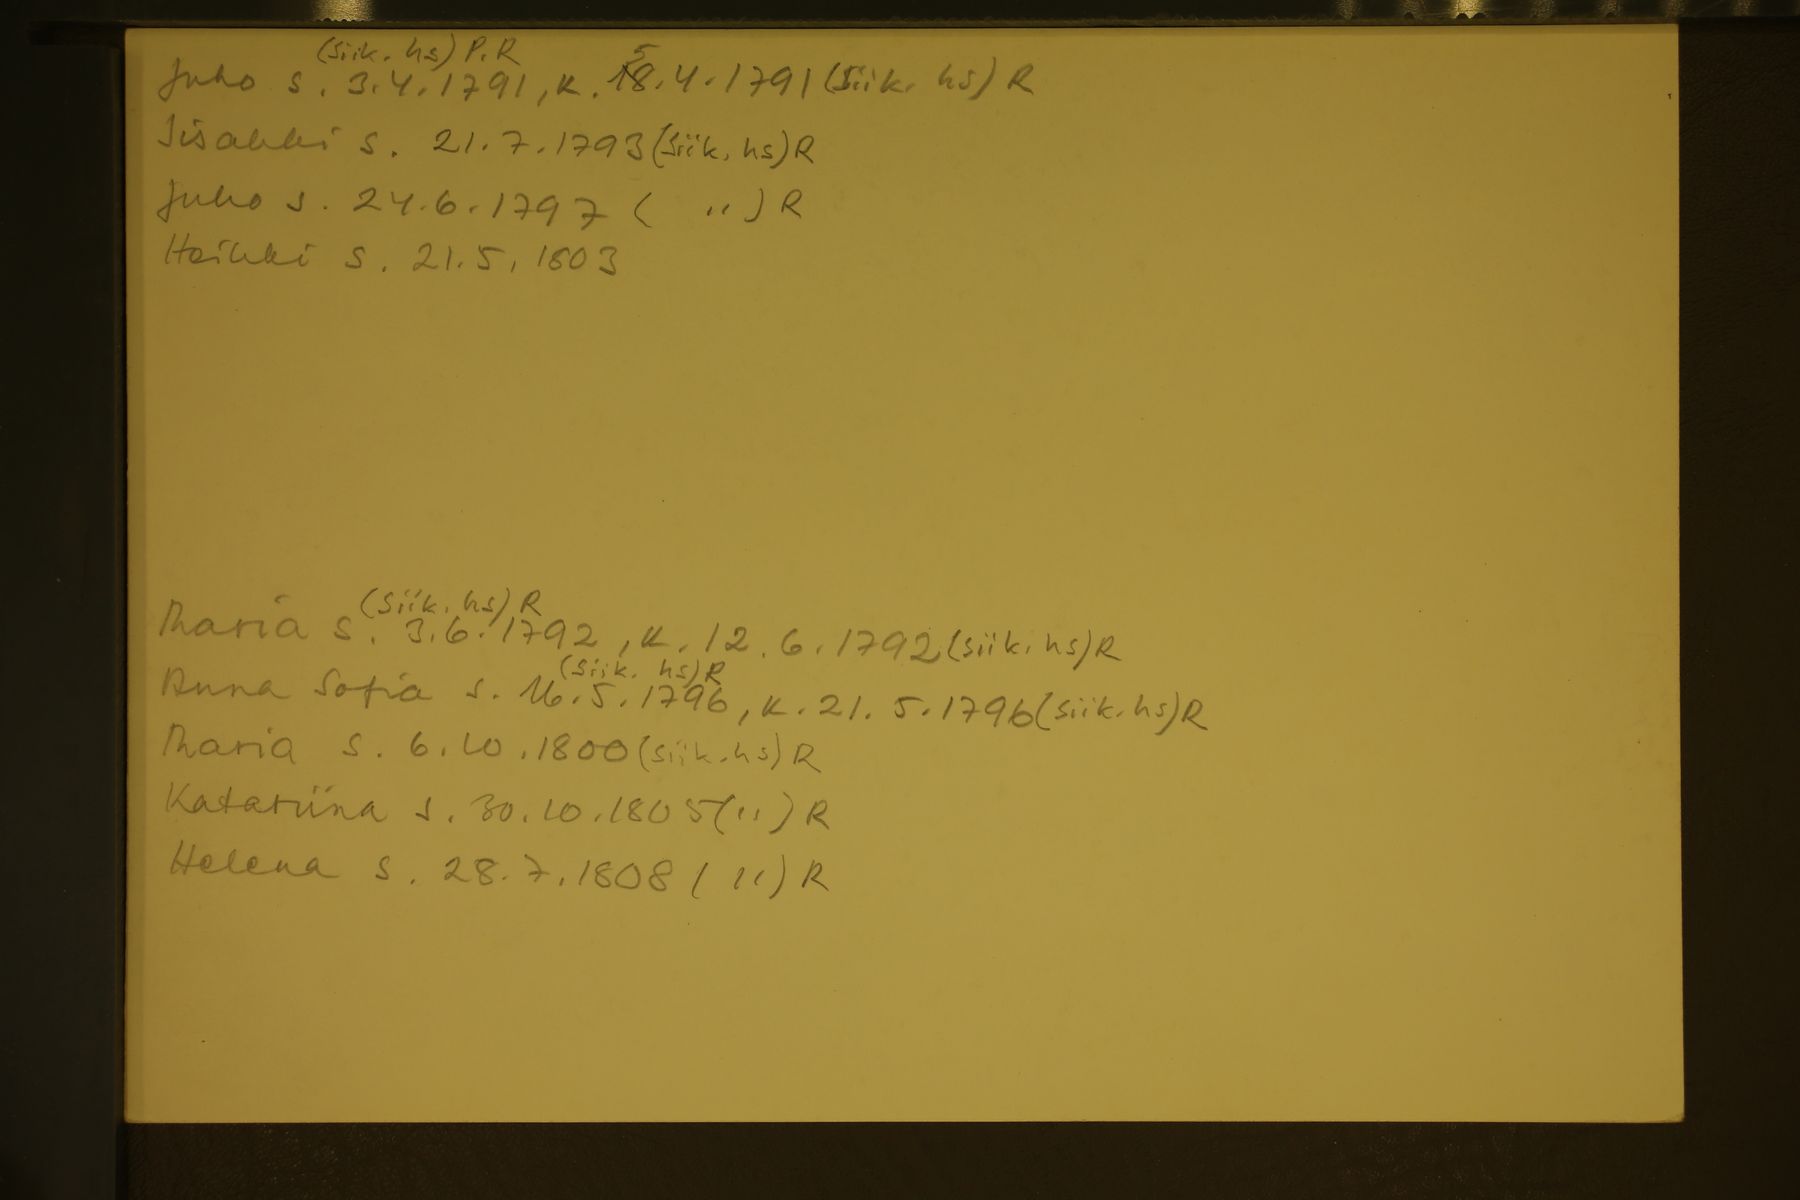 (Siik. hs) P.R
5
Juho s. 3.4.1791, k. 18.4.1791 (Siik. hs) R
Iisakki s. 21.7.1793 (Siik. hs) R
Juho s. 24.6.1797 ( " ) R
Heikki s. 21.5.1803
(Siik. hs) R
Maria s. 3.6.1792, k. 12.6.1792 (Siik. hs) R
(Siik. hs) R
Anna Sofia s. 16.5.1796, k. 21.5.1796 (Siik. hs) R
Maria s. 6.10.1800 (Siik. hs) R
Katariina s. 30.10.1805 ( " ) R
Helena s. 28.7.1808 ( " ) R